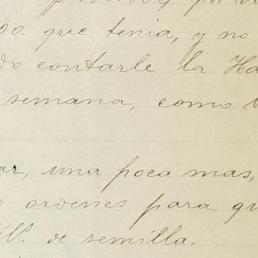 que tenia, y no
contarle la Ha
semana, como
ar, una poca mas,
ordenes para qu
de semilla.